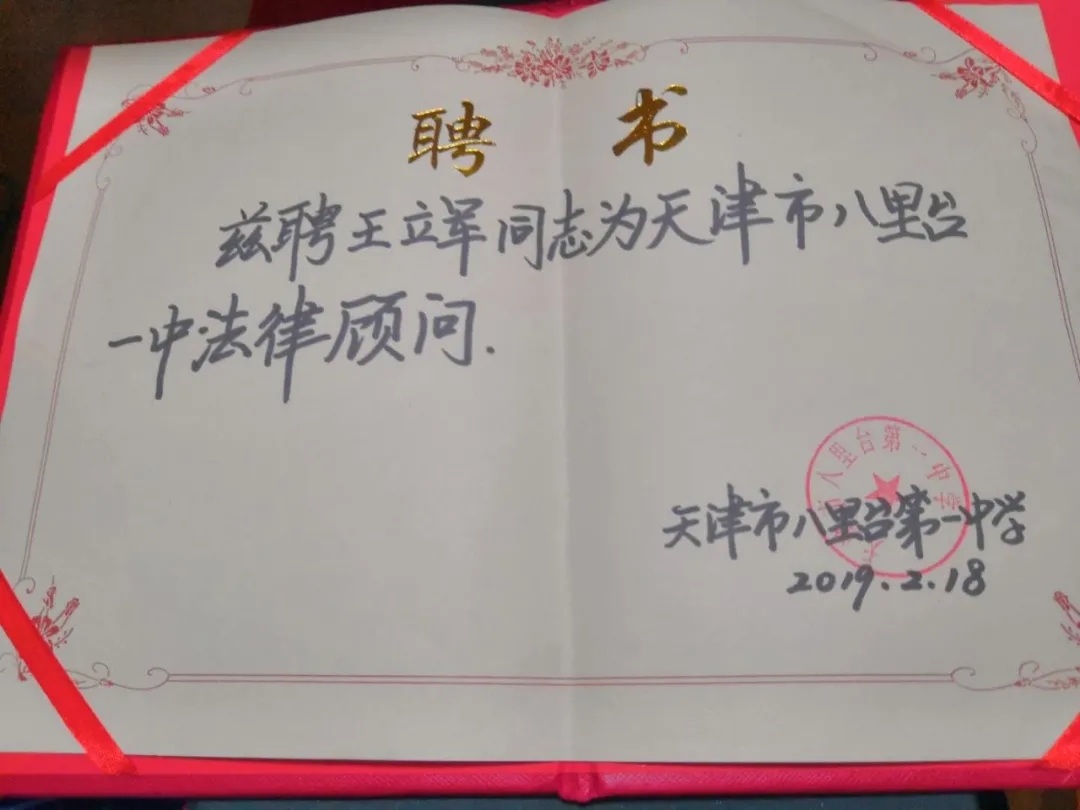 聘 书
兹聘王立军同志为天津市八里台
一中法律顾问.
天津市八里台第一中学
2019.2.18
八里台第一中学